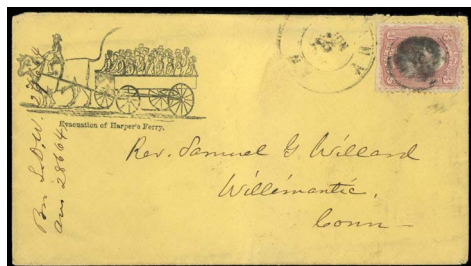 Evacuation of Harper's Ferry.
Rev. Samuel G. Willard
Willimantic,
Conn
28664